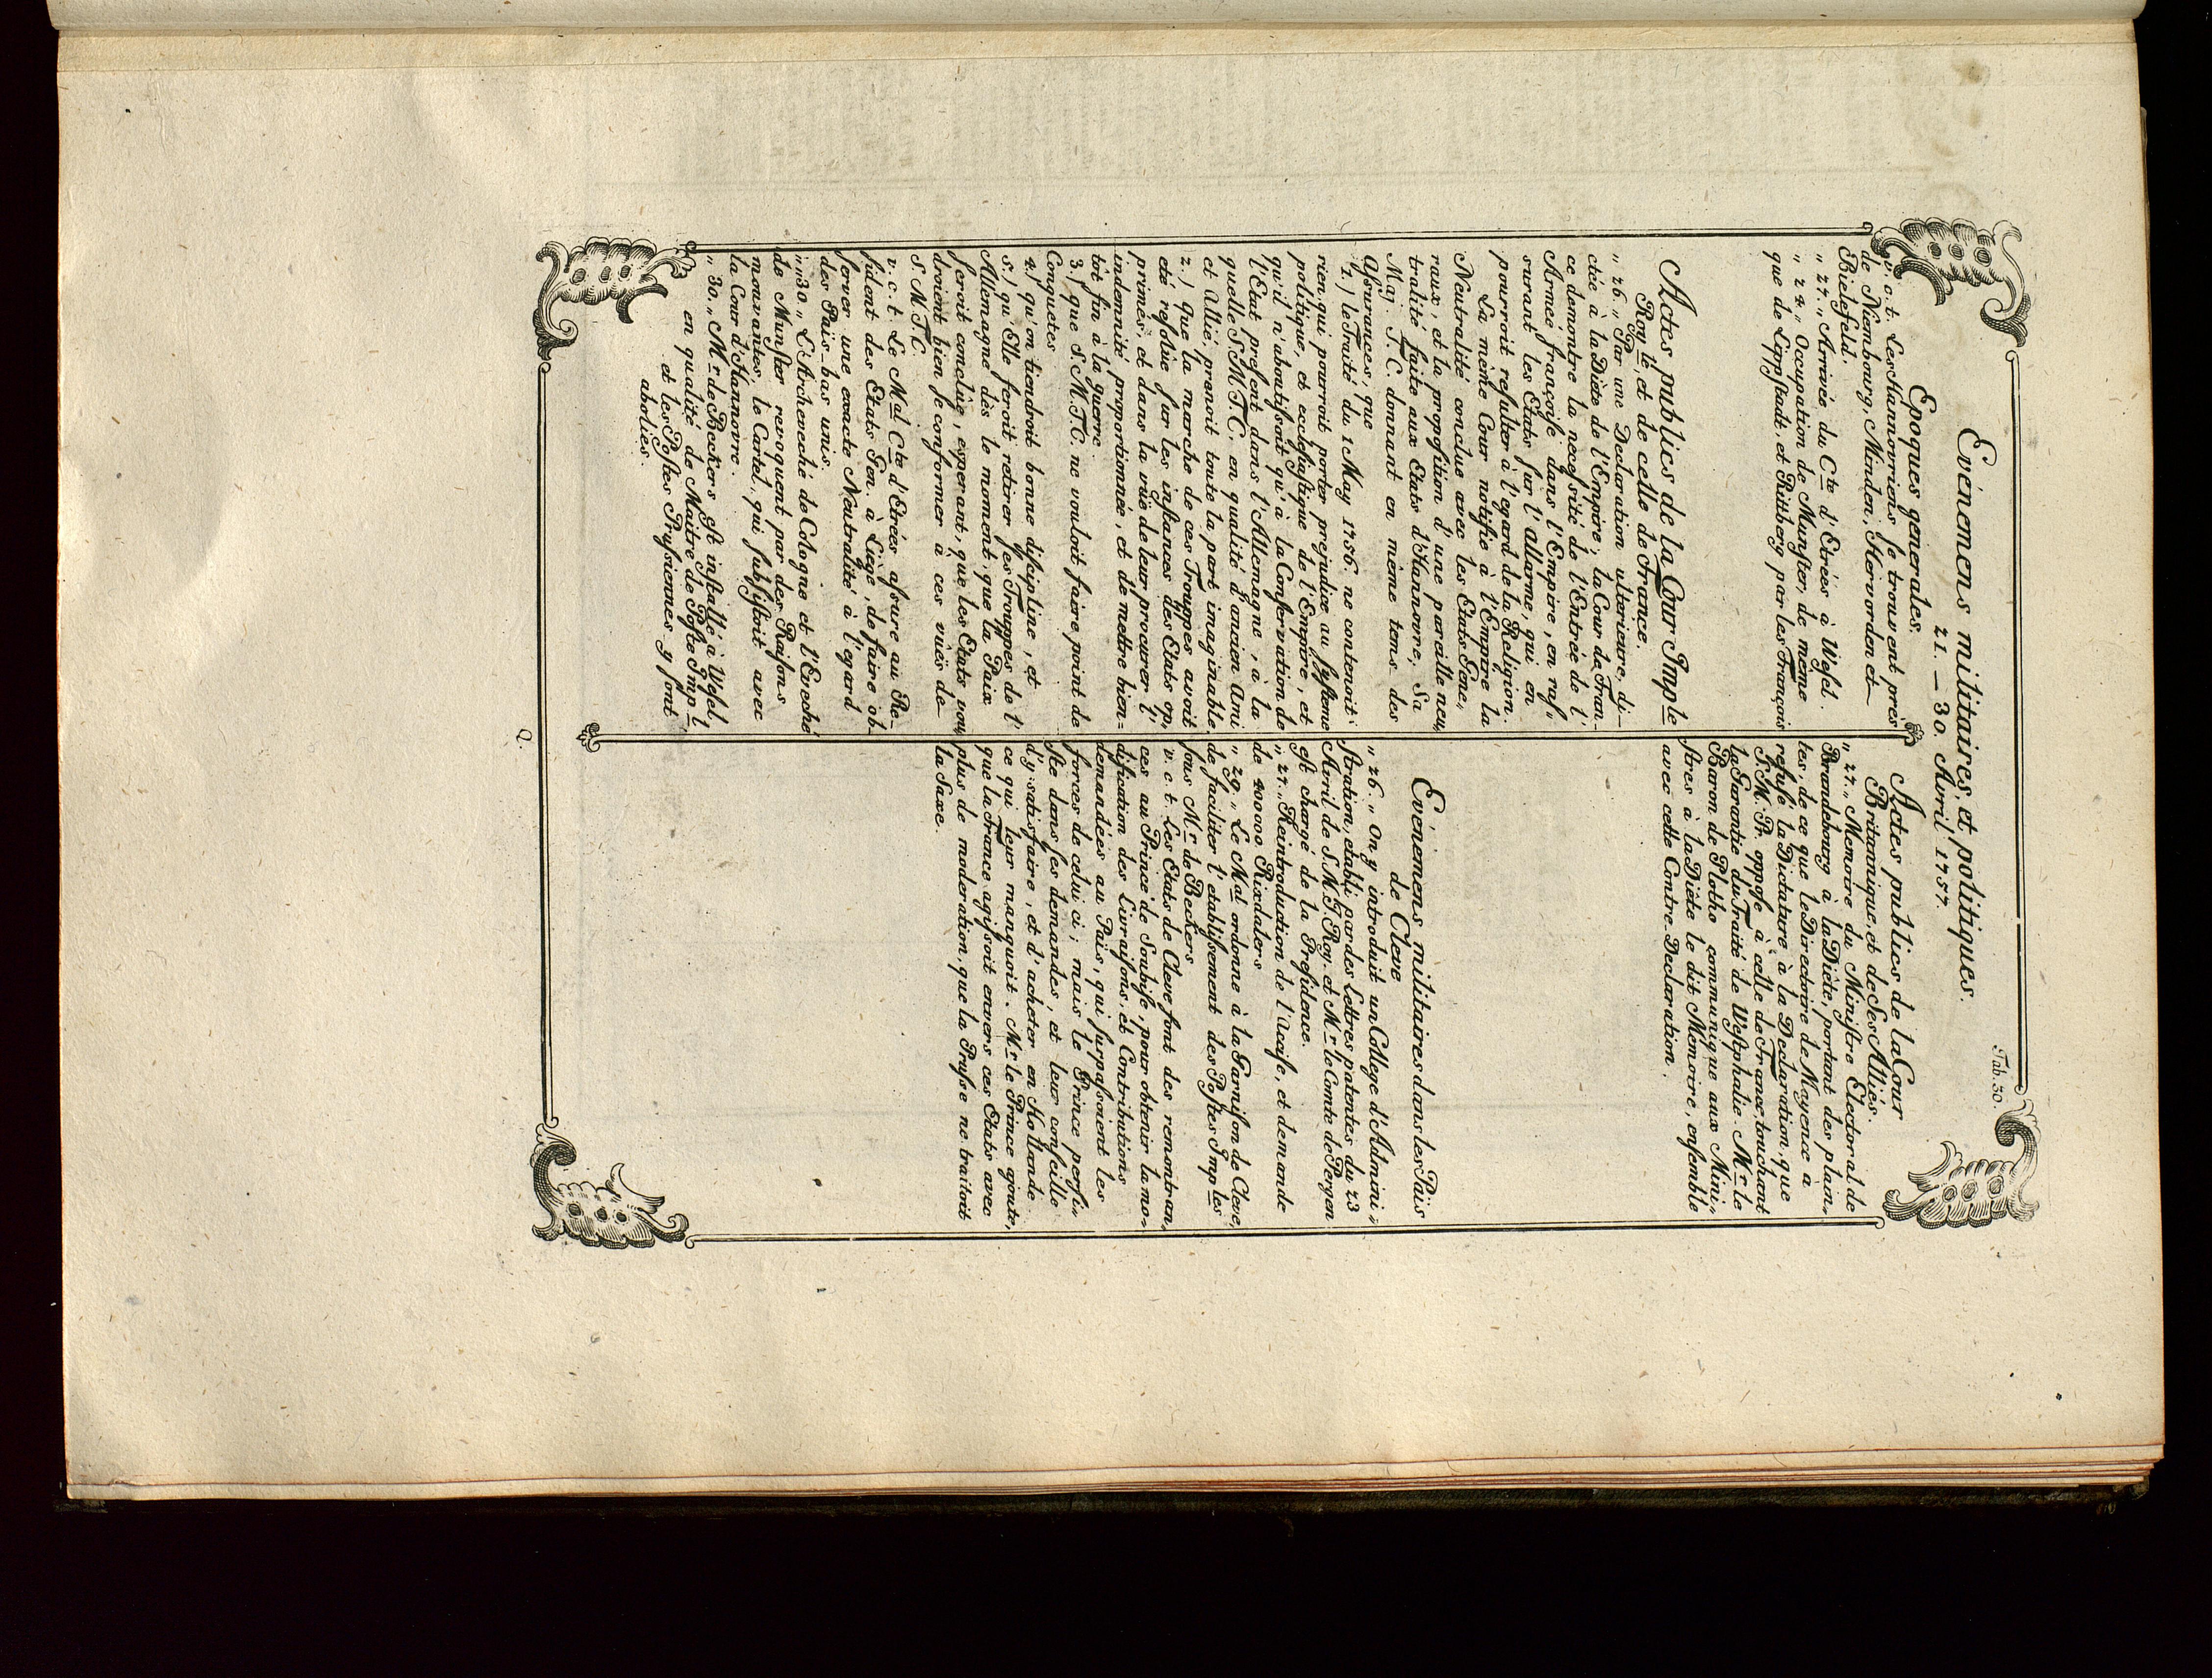 Tab. 30.
Evénemens militaires, et politiques.
21. — 30. Avril 1757.
Epoques generales.
v. c. t. Les Hannovriens se trouvent près
de Niembourg, Minden, Hervorden et
Bielefeld.
„ 27. „ Arrivée du Cte d'Etrées à Wesel.
„ 24. „ Occupation de Munster, de même
que de Lippstadt, et Rittberg par les François
Actes publics de la Cour Imple
Royle, et de celle de France.
„ 26. „ Par une Declaration ulterieure, di-
ctée à la Diète de l'Empire, la Cour de Fran-
ce demontre la necessité de l'Entrée de l'
Armée françoise dans l'Empire, en ras„
surant les Etats sur l'allarme, qui en
pourroit resulter à l'egard de la Religion.
La même Cour notifie à l'Empire la
Neutralité conclue avec les Etats Gene„
raux, et la proposition d'une pareille neu„
tralité faite aux Etats d'Hannovre, Sa
Maj. T. C. donnant en même tems des
Assurances, que
1.) le Traité du 1 May 1756. ne contenoit
rien qui pourroit porter prejudice au systeme
politique, et ecclesiastique de l'Empire, et
qu'il n'aboutissoit qu'à la Conservation de
l'Etat present dans l'Allemagne, à la
quelle S. M. T. C. en qualité d'ancien Ami
et Allié, prenoit toute la part imaginable.
2.) Que la marche de ces Trouppes avoit
eté resolüe sur les instances des Etats op„
primés, et dans la vüe de leur procurer l'
indemnité proportionnée, et de mettre bien=
tot fin à la guerre.
3.) que S. M. T. C. ne vouloit faire point de
Conquetes
4.) qu'on tiendroit bonne discipline, et
5.) qu'Elle feroit retirer ses Trouppes de l'
Allemagne dès le moment, que la Paix
seroit conclüe, esperant, que les Etats vou„
droient bien se conformer à ces vües de
S. M. T. C.
v. c. t. Le Mal Cte d'Etrées assure au Re-
sident des Etats Gen. à Liege, de faire ob-
server une exacte Neutralité à l'egard
des Païs-bas unis.
„ „ 30 „ L'Archeveché de Cologne et l'Eveché
de Munster revoquent par des Raisons
mouvantes, le Cartel, qui subsistoit avec
la Cour d'Hannovre.
„ 30. „ Mr. de Beckers est installé à Wesel,
en qualité de Maitre de Poste Impl,
et les Postes Prussiennes y sont
abolies.
Actes publics de la Cour
Britannique, et de Ses Alliés.
„ 27. „ Memoire du Ministre Electoral de
Brandebourg à la Diète, portant des plain„
tes, de ce que le Directoire de Mayence a
refusé la Dictature à la Declaration que
S. M. Pr. oppose à celle de France, touchant
la Garantie du Traité de Westphalie. Mr. le
Baron de Plotho communique aux Mini„
stres à la Diète le dit Memoire, ensemble
avec cette Contre-Declaration.
Evénemens militaires dans les Païs
de Cleve
„ 26. „ On y introduit un College d'Admini„
stration, etabli par des Lettres patentes du 23
Avril de S. M. J. Roy. et Mr. le Comte de Pergen
est chargé de la Presidence.
„ 27. „ Reintroduction de l'Accise, et demande
de 400000 Rixdalers
„ 29. „ Le Mal ordonne à la Garnison de Cleve,
de faciliter l'etablissement des Postes Imples
sous Mr. de Beckers
v. c. t. Les Etats de Cleve font des remontran„
ces au Prince de Soubise, pour obtenir la mo-
dification des Livraisons, et Contributions
demandées au Païs, qui surpassoient les
forces de celui ci; mais le Prince persi„
ste dans ses demandes, et leur conseille
d'y satisfaire, et d'acheter en Hollande
ce qui leur manquoit. Mr. le Prince ajoute,
que la France agissoit envers ces Etats avec
plus de moderation, que la Prusse ne traitoit
la Saxe.
Q.